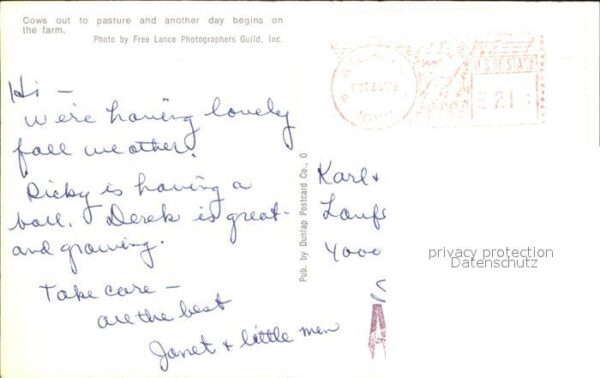 Cows out to pasture and another day begins on
the farm.
Photo by Free Lance Photographers Guild, Inc.
Hi –
We're having lovely
fall weather.
Ricky is having a
ball. Derek is great
and growing.
Take care –
are the best
Janet + little men
Pub. by Dunlap Postcard Co., O
Karl +
Laufs
4000
privacy protection
Datenschutz
U.S. POSTAGE